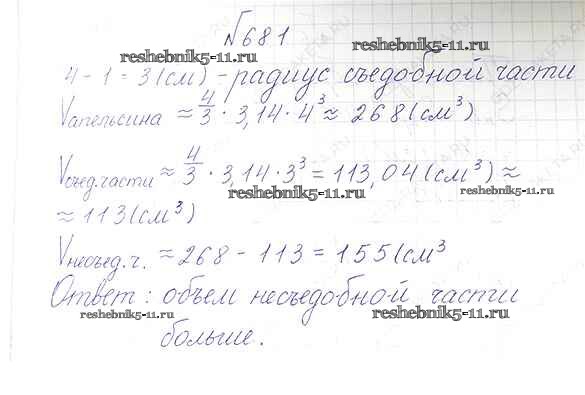 №681
reshebnik5-11.ru reshebnik5-11.ru
4 - 1 = 3 (см) - радиус съедобной части
Vапельсина ≈ 4/3 · 3,14 · 4³ ≈ 268 (см³)
Vсъед.части ≈ 4/3 · 3,14 · 3³ = 113,04 (см³) ≈
reshebnik5-11.ru reshebnik5-11.ru
≈ 113 (см³)
Vнесъед.ч. ≈ 268 - 113 = 155 (см³
Ответ: объем несъедобной части
reshebnik5-11.ru reshebnik5-11.ru
больше.